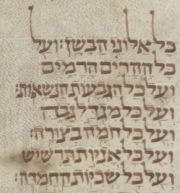 כל אלוני הבשן׃ ועל
כל ההרים הרמים
ועל כל הגבעות הנשאות׃
ועל כל מגדל גבה
ועל כל חמה בצורה׃
ועל כל אניות תרשיש
ועל כל שכיות החמדה׃